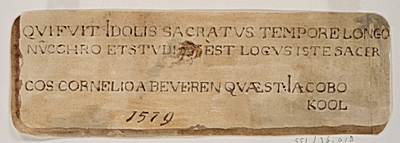 QVI FVIT IDOLIS SACRATVS TEMPORE LONGO
NVC CHRO ET STVDIIS EST LOCVS ISTE SACER
COS CORNELIO A BEVEREN QVÆST· IACOBO
KOOL
1579